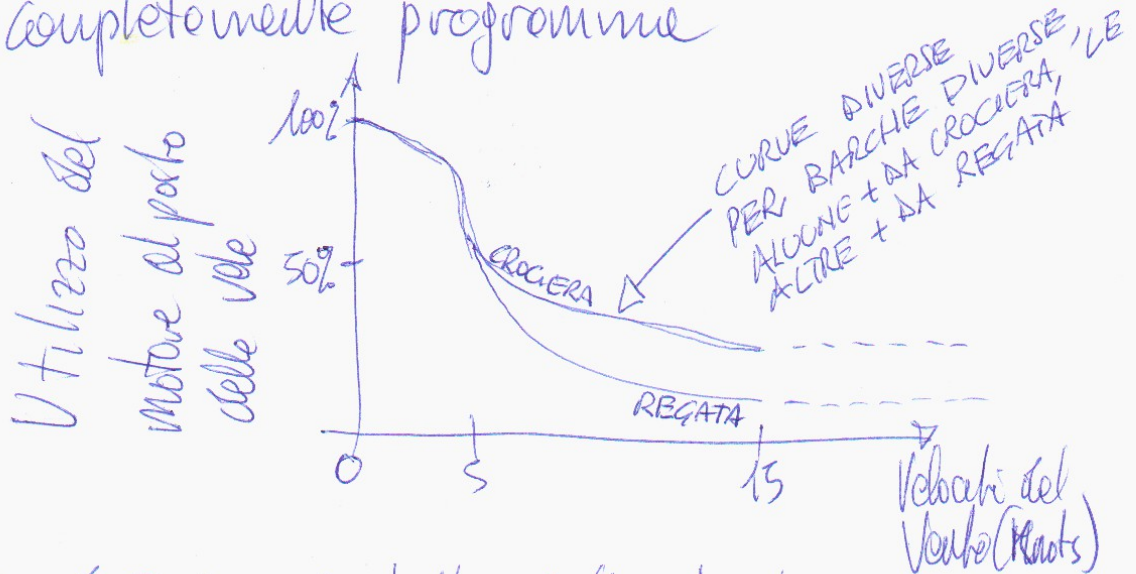 completamente programma
100%
50%
0
5
15
Utilizzo del
motore al posto
delle vele
CROCIERA
REGATA
CURVE DIVERSE
PER BARCHE DIVERSE, LE
ALCUNE + DA CROCIERA,
ALTRE + DA REGATA
Velocità del
Vento (Knots)